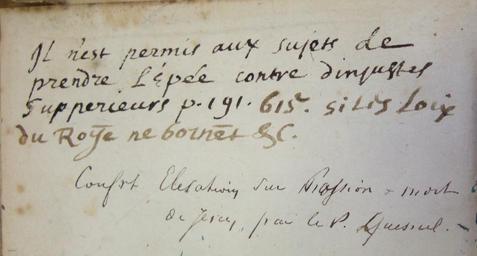 Il n'est permis aux sujets de
prendre L'Epée contre d'injustes
Supperieurs p. 191. 615. si les Loix
du Roye ne bornēt &c.
sur Passion & mort
de Jesus, par le P. Quesnel.